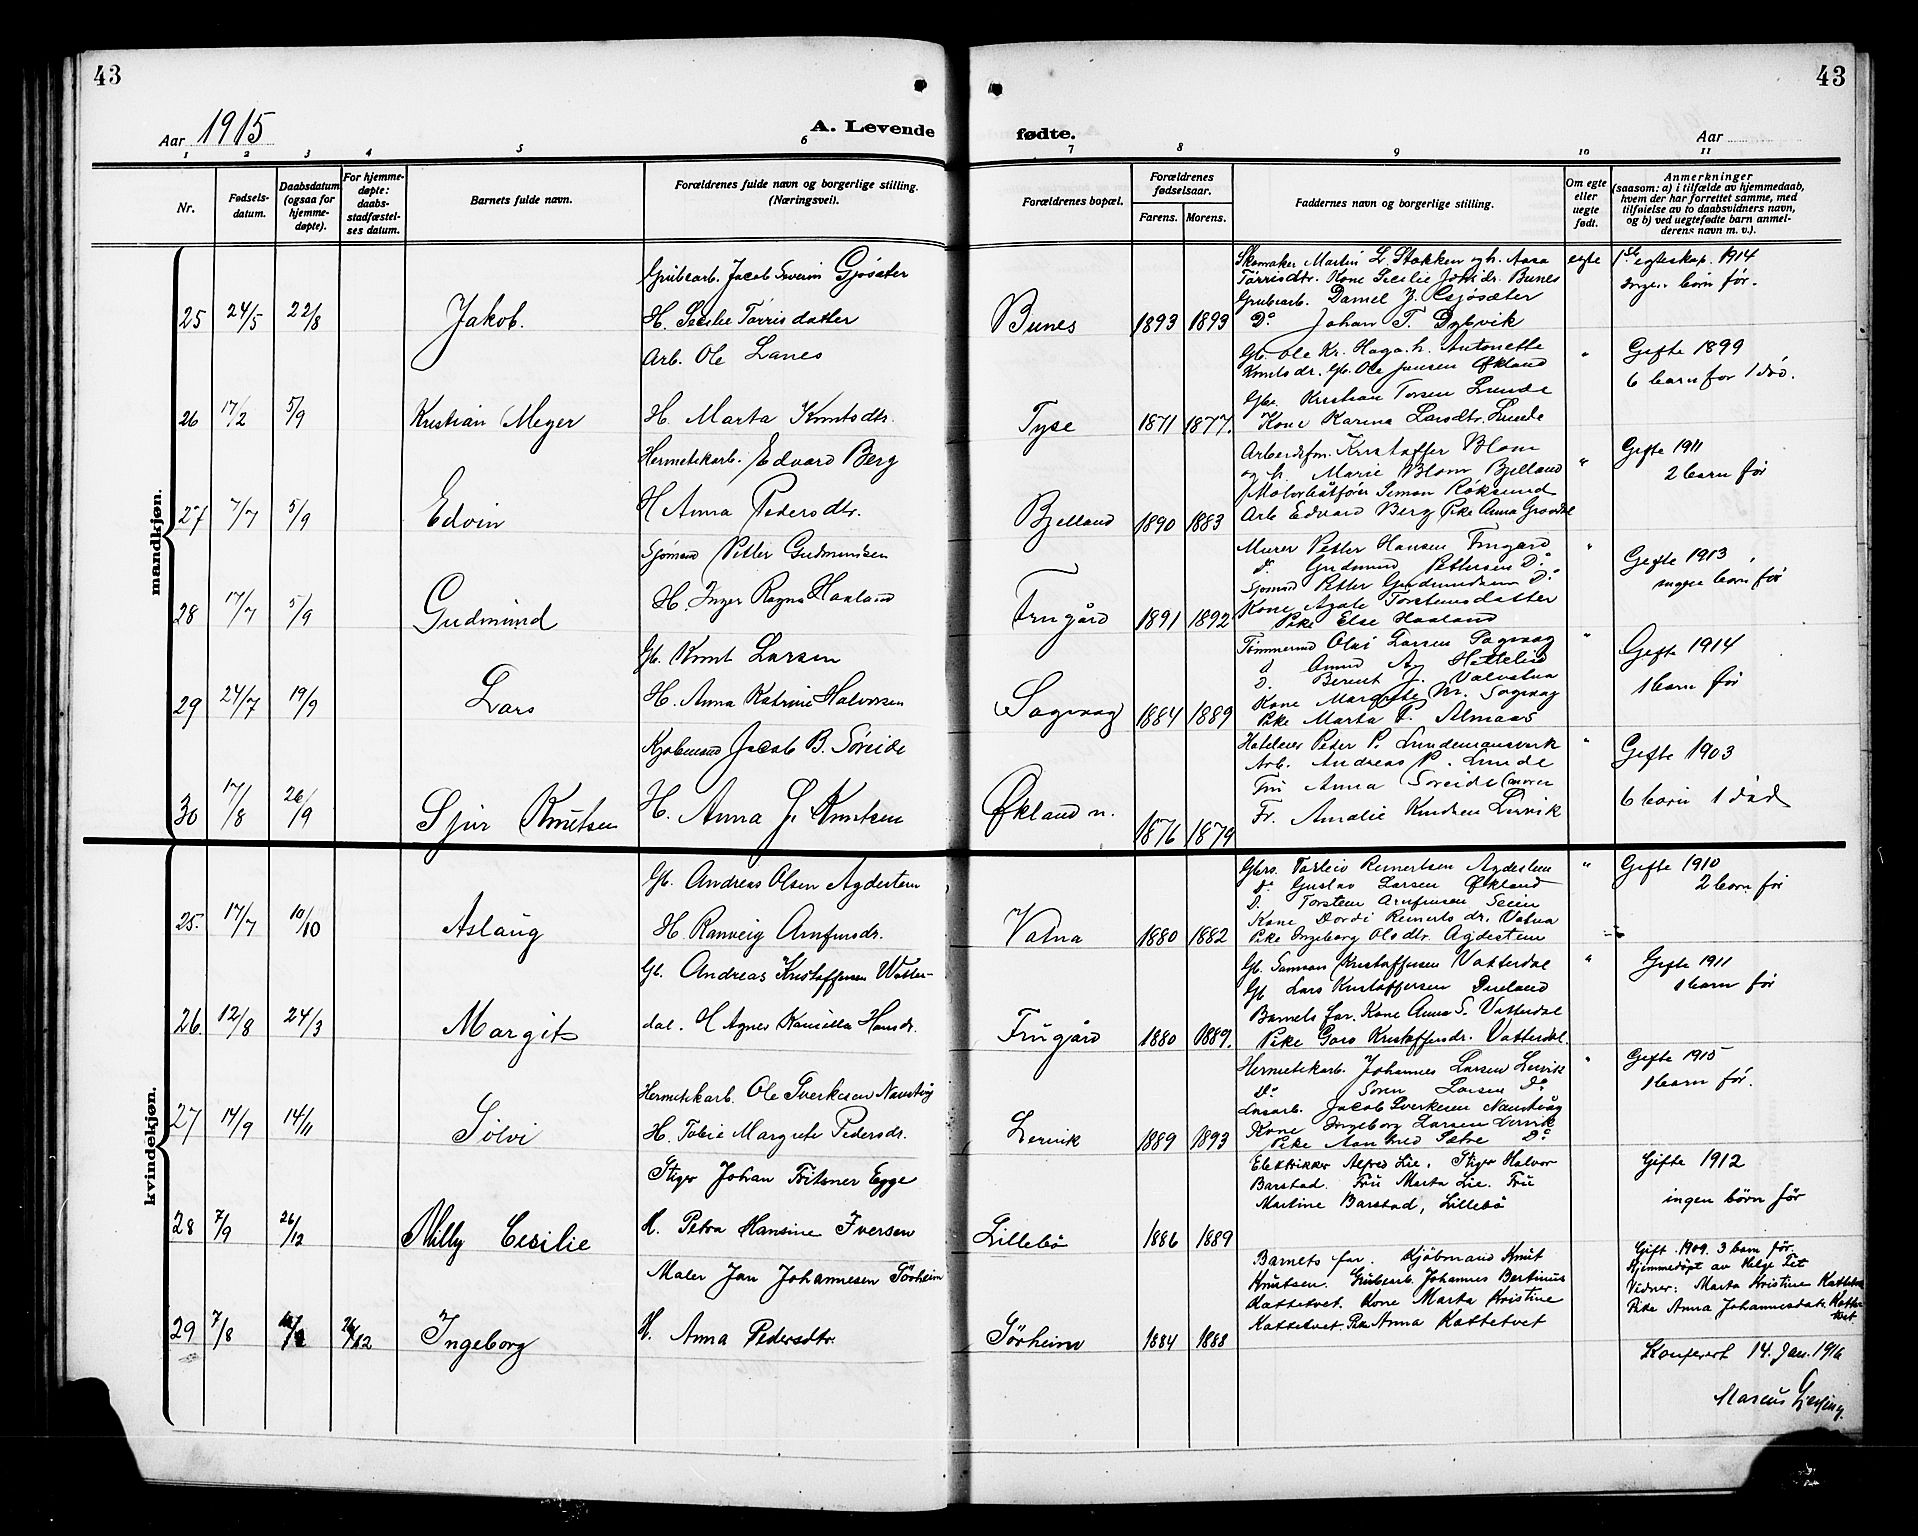 43
43
Aar 1915
A. Levende
fødte.
Aar
1 2 3 4 5 6 7 8 9 10 11
Nr.
Fødsels-
datum.
Daabsdatum
(ogsaa for
hjemme-
døpte).
For hjemme-
døpte:
daabs-
stadfæstel-
ses datum.
Barnets fulde navn.
Forældrenes fulde navn og borgerlige stilling.
(Næringsvei).
Forældrenes bopæl.
Forældrenes
fødselsaar.
Farens. Morens.
Faddernes navn og borgerlige stilling.
Om egte
eller
uegte
født.
Anmerkninger
(saasom: a) i tilfælde av hjemmedaab,
hvem der har forrettet samme, med
tilføielse av to daabsvidners navn,
og b) ved uegtefødte barn anmel-
derens navn m. v.).
mandkjøn.
25 24/5 22/8 Jakob.
Grubearb. Jacob Severin Gjøsæter
H. Secilie Tørrisdatter
Bunes 1893 1893
Skomaker Martin L. Stokken og h. Aasa
Tørrisdtr. Kone Secilie Johsdr. Bunes
Grubearb. Daniel J. Gjøsæter
Do Johan T. Dybvik
egte
1ste egteskap. 1914
ingen børn før.
26 17/2 5/9 Kristian Meyer
Arb. Ole Lanes
H. Marta Knutsdtr.
Tyse 1871 1877.
Gb. Ole Kr. Haga. h. Antonette
Knutsdr. Gb. Ole Jensen Økland
Gbr. Kristian Torsen Lunde
Kone Karina Larsdtr. Lunde
"
Gifte 1899
6 barn før 1 død.
27 7/7 5/9 Edvin
Hermetikarb. Edvard Berg
H Anna Pedersdtr.
Bjelland 1890 1883
Arbeidsfm. Kristoffer Blom
og h. Marie Blom Bjelland
Motorbåtfører Simon Røksund
Arb Edvard Berg Pike Anna
"
Gifte 1911
2 barn før
28 17/7 5/9 Gudmund
Sjømand Petter Gudmundsen
H. Inger Ragna Haaland
Frugård 1891 1892
Murer Petter Hansen Frugård
d. Gudmund Pettersen Do
Sjømnd Petter Gudmundsen Do
Kone Agate Torsteinsdatter
Pike Else Haaland
"
Gifte 1913
ingen børn før
29 24/7 19/9 Lars
Gb. Knut Larsen
H. Anna Katrine Halvorsen
Sagvaag 1884 1889
Tømmermd Olai Larsen Sagvaag
d. Amund Aj Hattelid
d. Berent J. Valvatna
Kone Margrete Nr. Sagvaag
Pike Marta T. Almaas
"
Gifte 1914
1 barn før
30 17/8 26/9 Sjur Knutsen
Kjøbmand Jacob B. Søreide
H. Anna J. Knutsen
Økland n. 1876 1879
Hoteleier Peter P. Lundemansverk
Arb. Andreas P. Lunde
Fru Anna Søreide (moren
Fr. Amalie Knudsen Lervik
"
Gifte 1903
6 barn 1 død
kvindekjøn.
25. 17/7 10/10 Aslaug
Gb. Andreas Olsen Agdestein
H. Ranveig Arnfinsdr.
Vatna 1880 1882
Gbrs. Torleiv Reinertsen Agdestein
Do Gustav Larsen Økland
D. Torstein Arnfinsen Seim
Kone Dordi Reinerts dr. Vatna
Pike Ingeborg Olsdtr. Agdestein
"
Gifte 1910
2 barn før
26. 12/8 24/3 Margit
Gb. Andreas Kristoffersen Vatter-
dal. H Agnes Kamilla Hansdr.
Frugård 1880 1889.
Gb. Samson Kristoffersen Vatterdal
Gb Lars Kristoffersen
Barnets far. Kone Anna S. Vatterdal
Pike Goro Kristoffersdr. Vatterdal.
"
Gifte 1911
1 barn før
27 14/9 14/11 Sølvi
Hermetikarb. Ole Sverkesen Naustvåg
H. Tobie Margrete Pedersdr.
Lervik 1889 1893
Hermetikarb. Johannes Larsen Lervik
Do Soren Larsen Do
Løsarb. Jacob Sverkesen Naustvåg
Kone Ingeborg Larsen Lervik
Pike Sætre Do
"
Gifte 1915
1 barn før.
28 7/9 26/12 Milly Cecilie
Stiger Johan Fritsner Egge
H. Petra Hansine Iversen
Lillebø 1886 1889
Elektrikker Alfred Lie. Stiger Halvor
Barstad. Fru Marta Lie. Fru
Martine Barstad, Lillebø
Gifte 1912
ingen børn før
29 7/8 26/12 Ingeborg
Maler Jan Johannesen Sørheim
H. Anna Pedersdtr.
Sørheim 1884 1888
Barnets far. Kjøbmand Knut
Knutsen. Grubearb. Johannes Bertinus
Kattetvet. Kone Marta Kristine
Kattetvet. Pike Anna Kattetvet
Gift 1909. 3 barn før.
Hjemmedøpt av Helge Tet
Vidner: Marta Kristine Kattetvet
Pike Anna Johannesdatr. Katte-
tvet
Konferert 14. Jan. 1916
Marcus Gjessing.